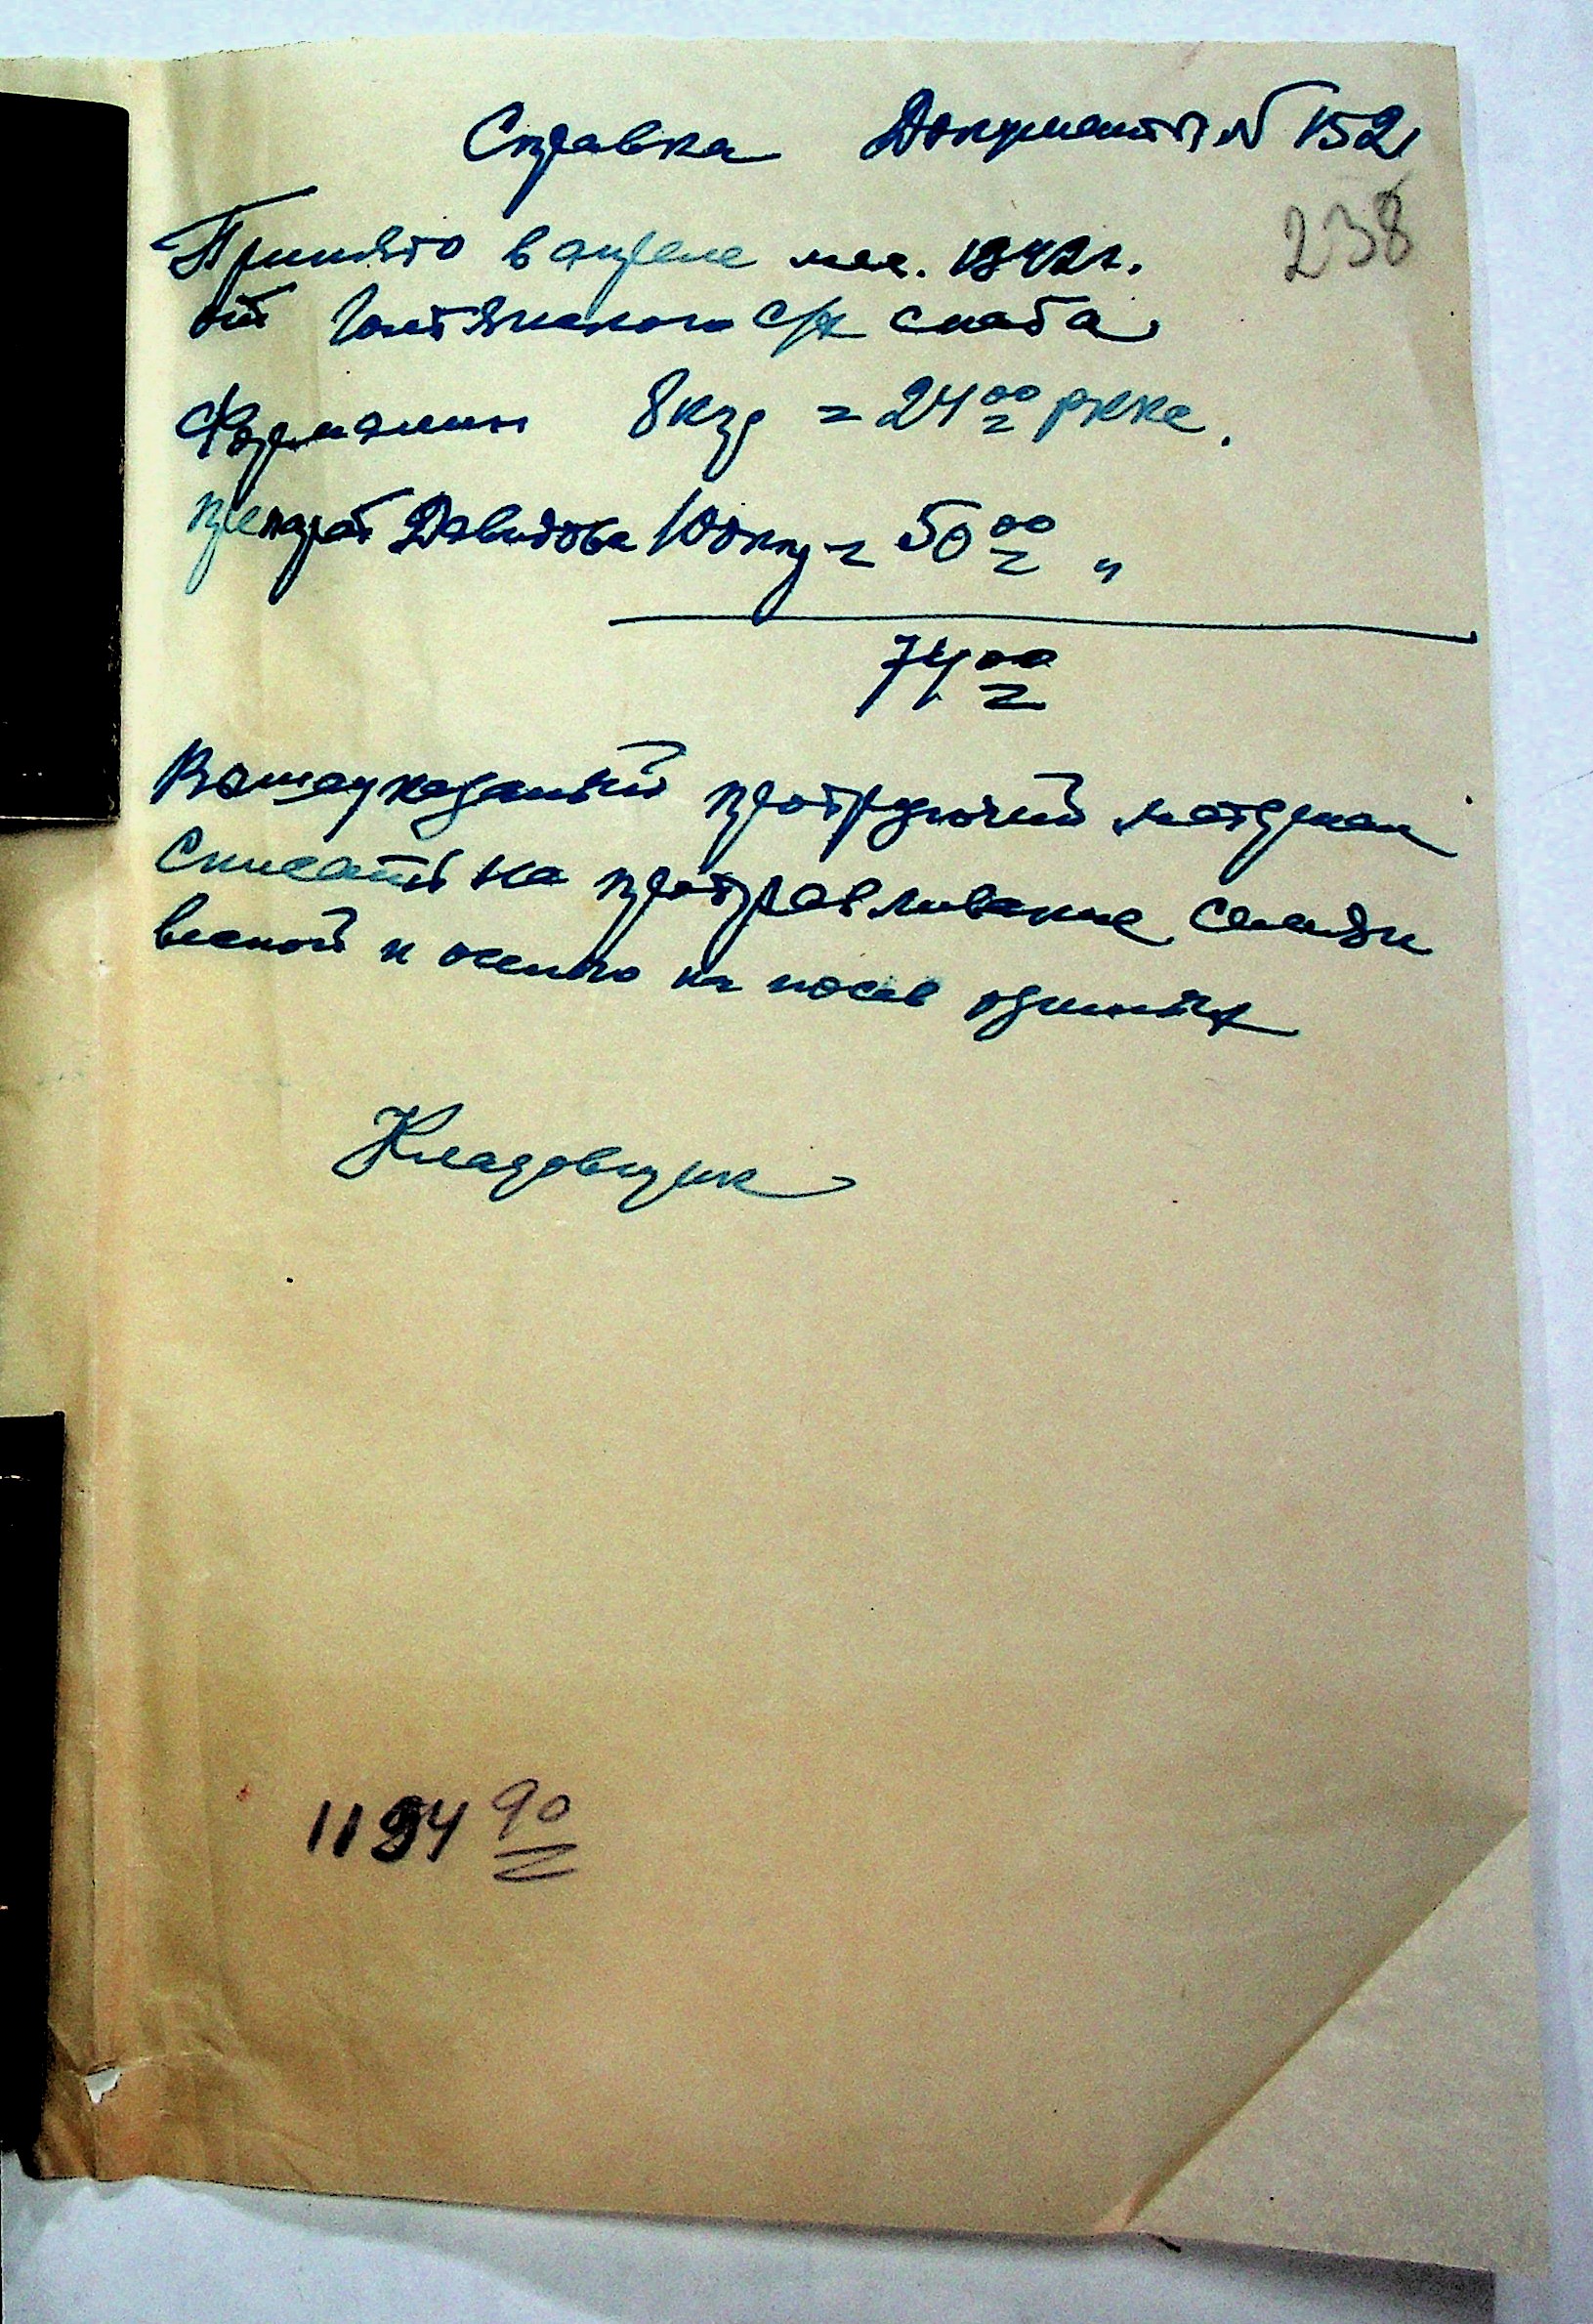 Справка Документ N 152
238
Принято в апреле мес. 1942 г.
от с/х снаба
Формалин 8 кгр = 24 00
препарат Давидова 100 кгр = 50 00 "
74 00
Вышеуказаный материал
списать на протравливание семян
весной и осенью на посев озимых
Кладовщик
1194 90